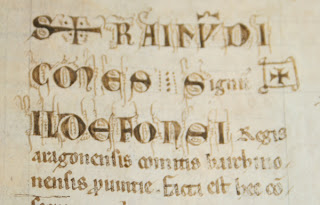 S + RAIMUDI
COMES : Signū
ILDEFONSI. Regis
aragonensis comitis barchino
nensis puintie. Ficta est hec cō